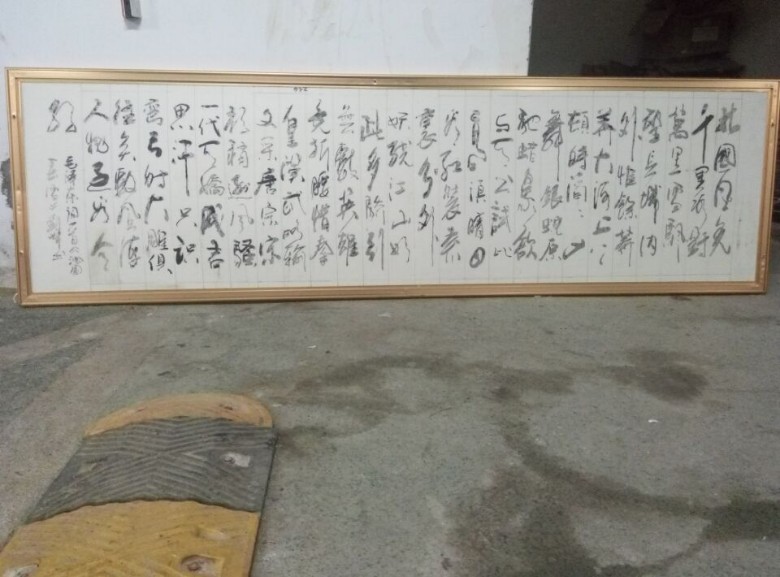 北國風光
千里冰封
萬里雪飄
望長城内
外惟餘莽
莽大河上下
頓時滔滔山
舞銀蛇原
馳蠟象欲
与天公試比
高須晴日
看紅裝素
裹分外
妖嬈江山如
此多嬌引
無數英雄
競折腰惜秦
皇漢武略輸
文采唐宗宋
祖稍遜風騷
一代天驕成吉
思汗只識
彎弓射大雕俱
往矣數風流
人物還看今
朝